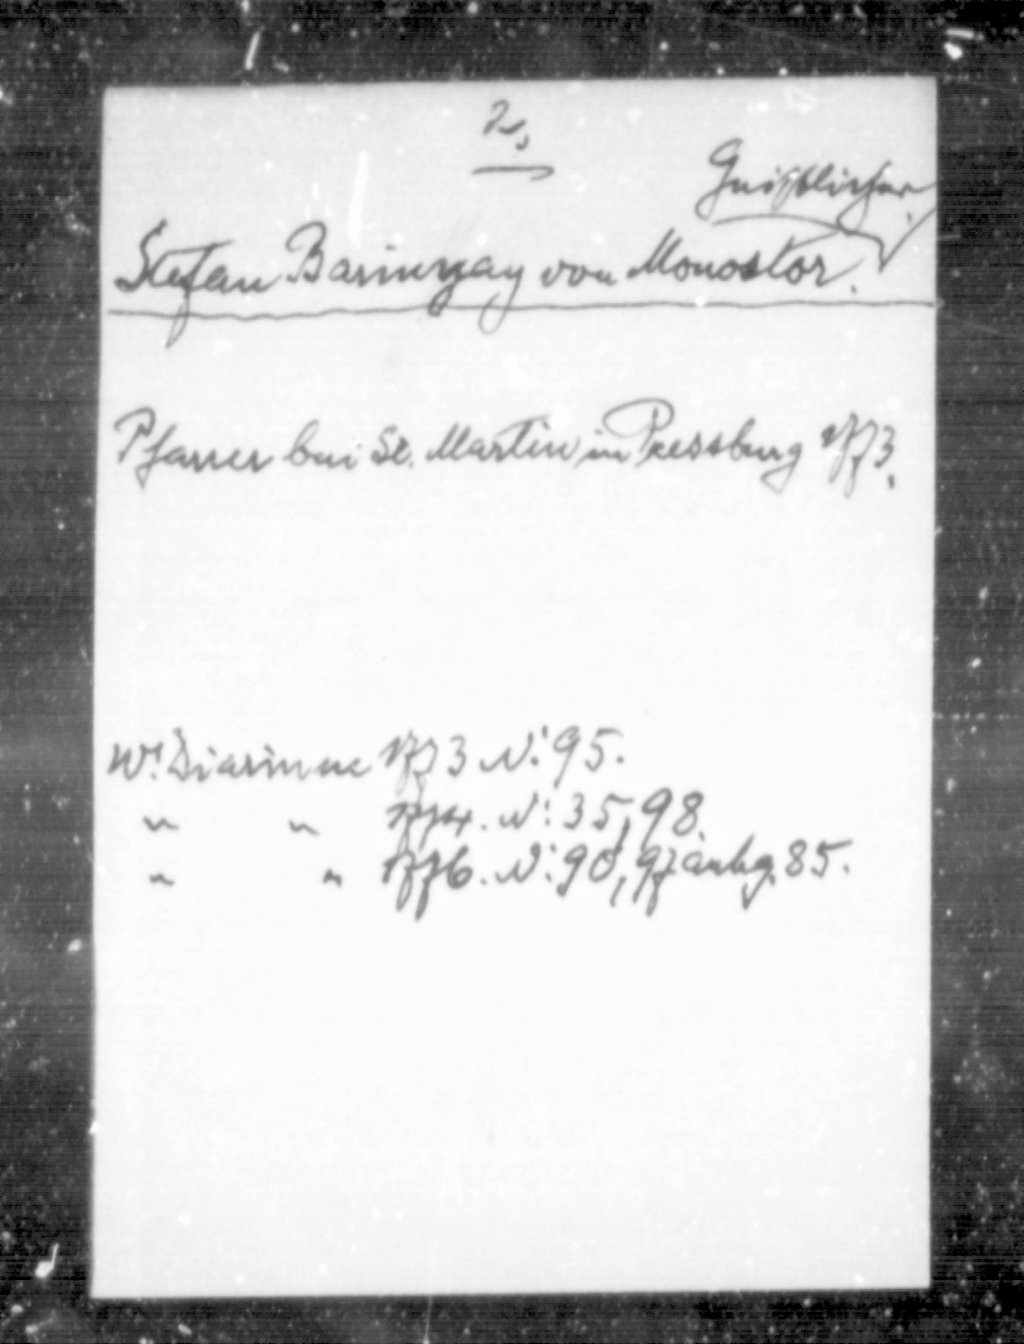 2,
Geistlicher.
Stefan Barinyay von Monostor.
Pfarrer bei St. Martin in Pressburg 1773.
Wr. Diarium 1773 N: 95.
" " 1774. N: 35, 98
" " 1776. N: 90, 97 anhg. 85.